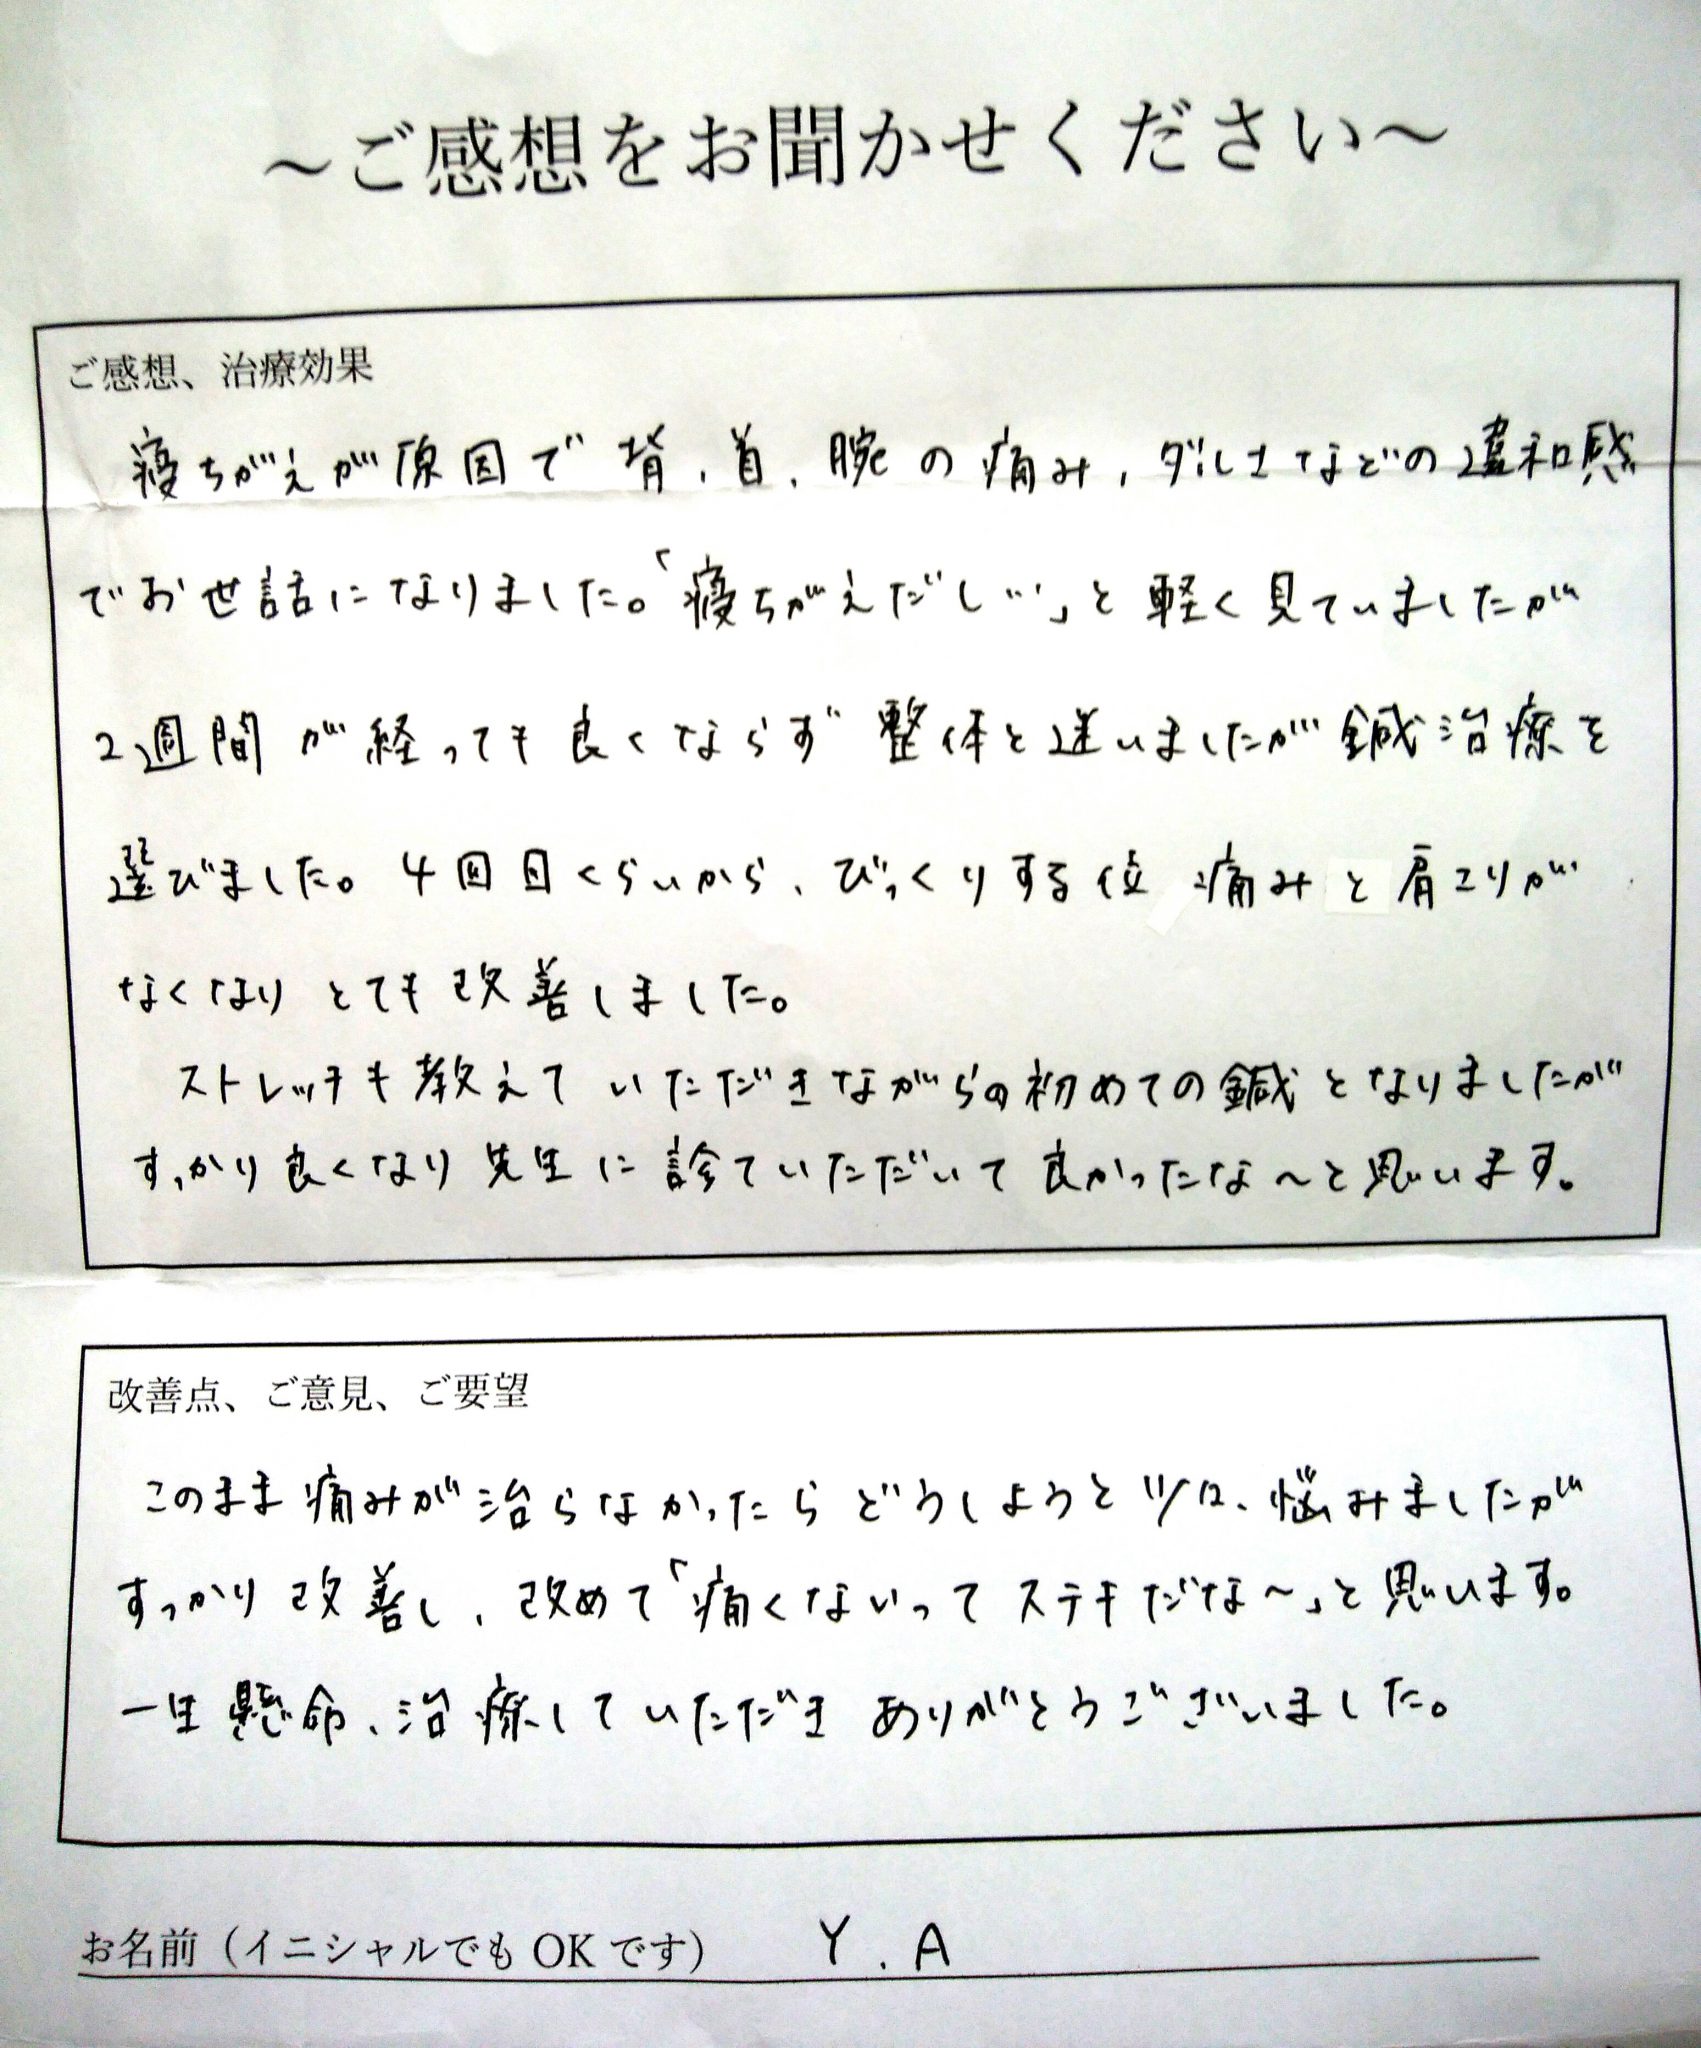 ～ご感想をお聞かせください～
ご感想、治療効果
寝ちがえが原因で背、首、腕の痛み、ダルさなどの違和感
でお世話になりました。「寝ちがえだし…」と軽く見ていましたが
2週間が経っても良くならず 整体と迷いましたが鍼治療を
選びました。4回目くらいから、びっくりする位 痛みと肩こりが
なくなり とても改善しました。
ストレッチも教えていただきながらの初めての鍼となりましたが
すっかり良くなり先生に診ていただいて良かったな～と思います。
改善点、ご意見、ご要望
このまま痛みが治らなかったらどうしようと 悩みましたが
すっかり改善し、改めて「痛くないってステキだな～」と思います。
一生懸命、治療していただき ありがとうございました。
お名前（イニシャルでもOKです） Y.A